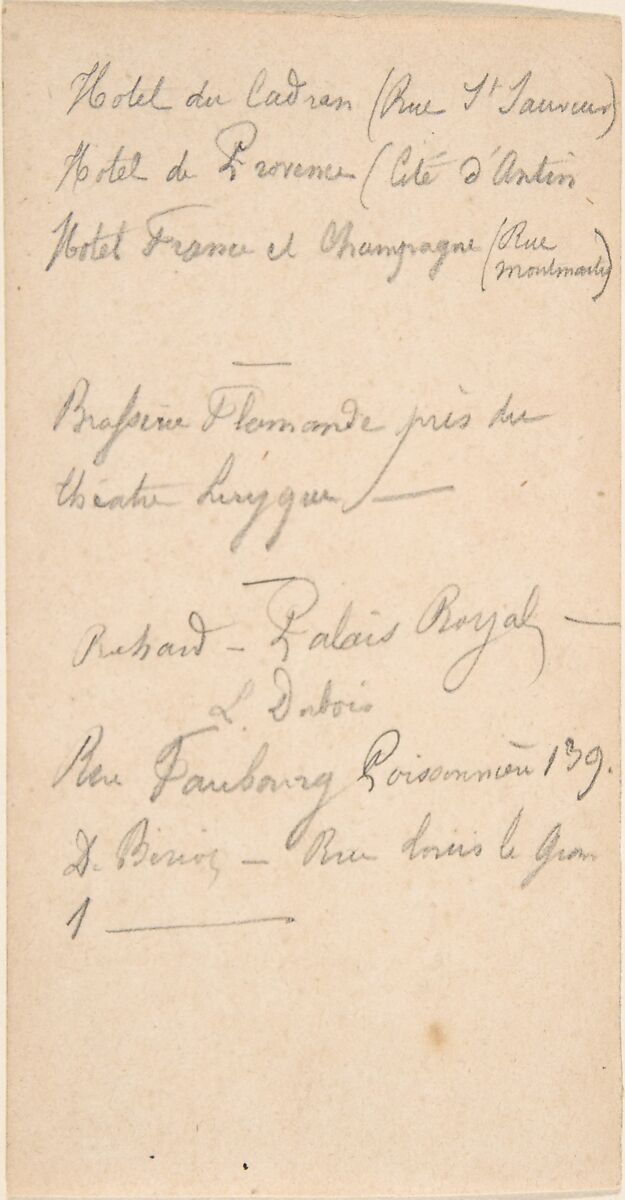 Hotel du Cadran (Rue St Sauveur)
Hotel de Provence (Cité d'Antin
Hotel France et Champagne (Rue
Montmartre)
—
Brasserie Flamande près du
théatre Lirygue —
—
Richard – Palais Royal —
L. Dubois
Rue Faubourg Poissonnière 139.
D. – Rue Louis le Gran
1 ———